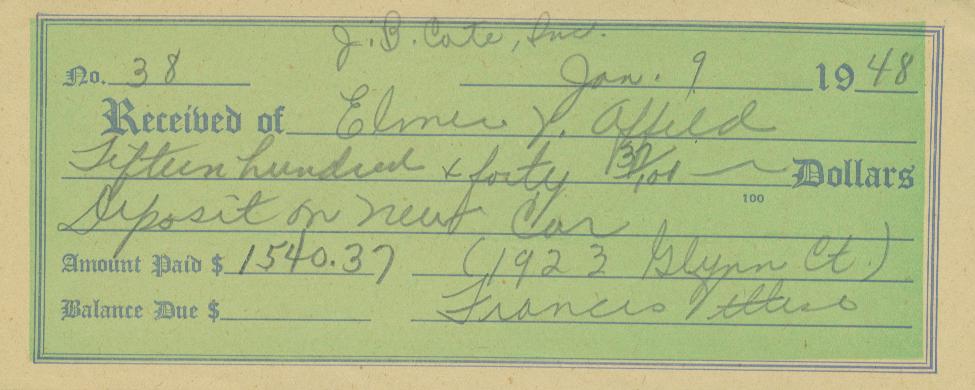 J. B. Cote, Inc.
No. 38 Jan. 9 1948
Received of Elmer Y. Affeld
Fifteen hundred & forty 37/100 Dollars
100
Deposit on new Car
Amount Paid $ 1540.37 (1923 Glynn Ct.)
Balance Due $ Francis